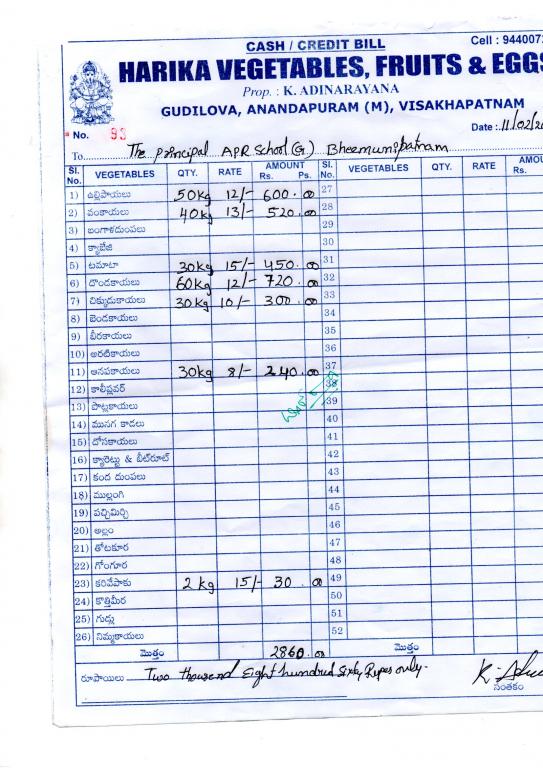 CASH / CREDIT BILL
Cell : 944007
HARIKA VEGETABLES, FRUITS & EGGS
Prop. : K. ADINARAYANA
GUDILOVA, ANANDAPURAM (M), VISAKHAPATNAM
No. 93
Date : 11/02/20
To The principal APR School (G) Bheemunipatnam
Sl. No. VEGETABLES QTY. RATE AMOUNT Rs. Ps. Sl. No. VEGETABLES QTY. RATE AMOU Rs.
1) ఉల్లిపాయలు 50kg 12/- 600.00 27
2) వంకాయలు 40kg 13/- 520.00 28
3) బంగాళదుంపలు 29
4) క్యాబేజి 30
5) టమాటా 30kg 15/- 450.00 31
6) దొండకాయలు 60kg 12/- 720.00 32
7) చిక్కుడుకాయలు 30kg 10/- 300.00 33
8) బెండకాయలు 34
9) బీరకాయలు 35
10) అరటికాయలు 36
11) ఆనపకాయలు 30kg 8/- 240.00 37
12) కాలీఫ్లవర్ 38
13) పొట్లకాయలు 39
14) మునగ కాడలు 40
15) దోసకాయలు 41
16) క్యారెట్టు & బీట్‌రూట్ 42
17) కంద దుంపలు 43
18) ముల్లంగి 44
19) పచ్చిమిర్చి 45
20) అల్లం 46
21) తోటకూర 47
22) గోంగూర 48
23) కరివేపాకు 2 kg 15/- 30.00 49
24) కొత్తిమీర 50
25) గుడ్లు 51
26) నిమ్మకాయలు 52
మొత్తం 2860.00 మొత్తం
రూపాయిలు Two thousand Eight hundred Sixty Rupes only.
సంతకం